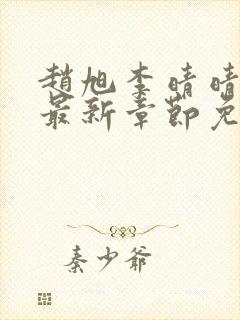 趙旭李晴晴
最新章節免
秦少爺